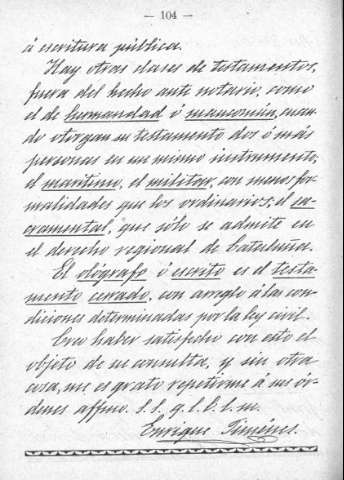 — 104 —
á escritura pública.
Hay otras clases de testamentos,
fuera del hecho ante notario, como
el de hermandad ó mancomún, cuan-
do otorgan su testamento dos ó más
personas en un mismo instrumento;
el marítimo, el militar, con menos for-
malidades que los ordinarios; el sa-
cramental, que sólo se admite en
el derecho regional de Cataluña.
El ológrafo ó escrito es el testa-
mento cerrado, con arreglo á las con-
diciones determinadas por la ley civil.
Creo haber satisfecho con esto el
objeto de su consulta, y sin otra
cosa, me es grato repetirme á sus ór-
denes affmo. S. S. q. l. b. l. m.
Enrique Jiménez.